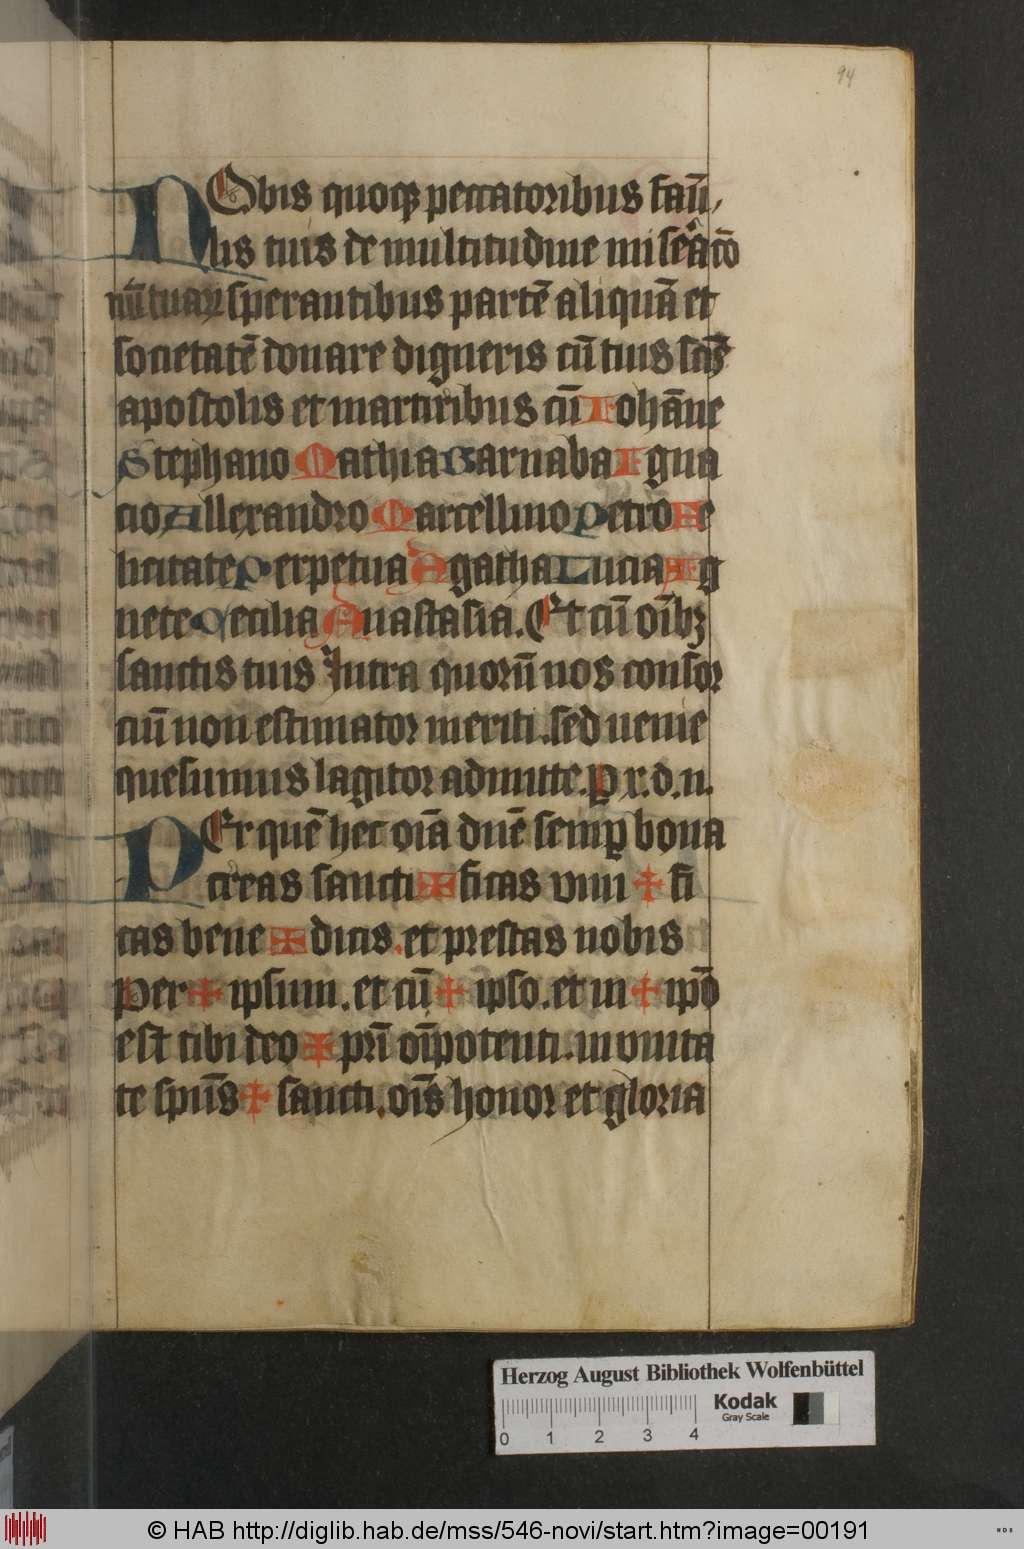 94
NObis quoqꝫ peccatoribus famū
lis tuis de multitudine miseratō
nū tuaꝝ sperantibus partē aliquā et
societatē donare digneris cū tuis scīs
apostolis et martiribus cū Iohāne
Stephano Mathia Barnaba Igna
cio Allexandro Marcellino Petro Fe
licitate Perpetua Agatha Lucia Ag
nete Cecilia Anastasia. Et cū oībꝫ
sanctis tuis Intra quorū nos consor
ciū non estimator meriti. sed uenie
quesumus lagitor admitte. P x. d. n.
PEr quē hec oīa dn̄e semꝑ bona
creas sancti ✠ ficas viui ✠ fi
cas bene ✠ dicis. et prestas nobis
Per ✠ ipsum. et cū ✠ ipso. et in ✠ ipō
est tibi deo ✠ pr̄i oīpotenti. in vnita
te spūs ✠ sancti. oīs honor et gloria
Herzog August Bibliothek Wolfenbüttel
Kodak
Gray Scale
0 1 2 3 4
© HAB http://diglib.hab.de/mss/546-novi/start.htm?image=00191